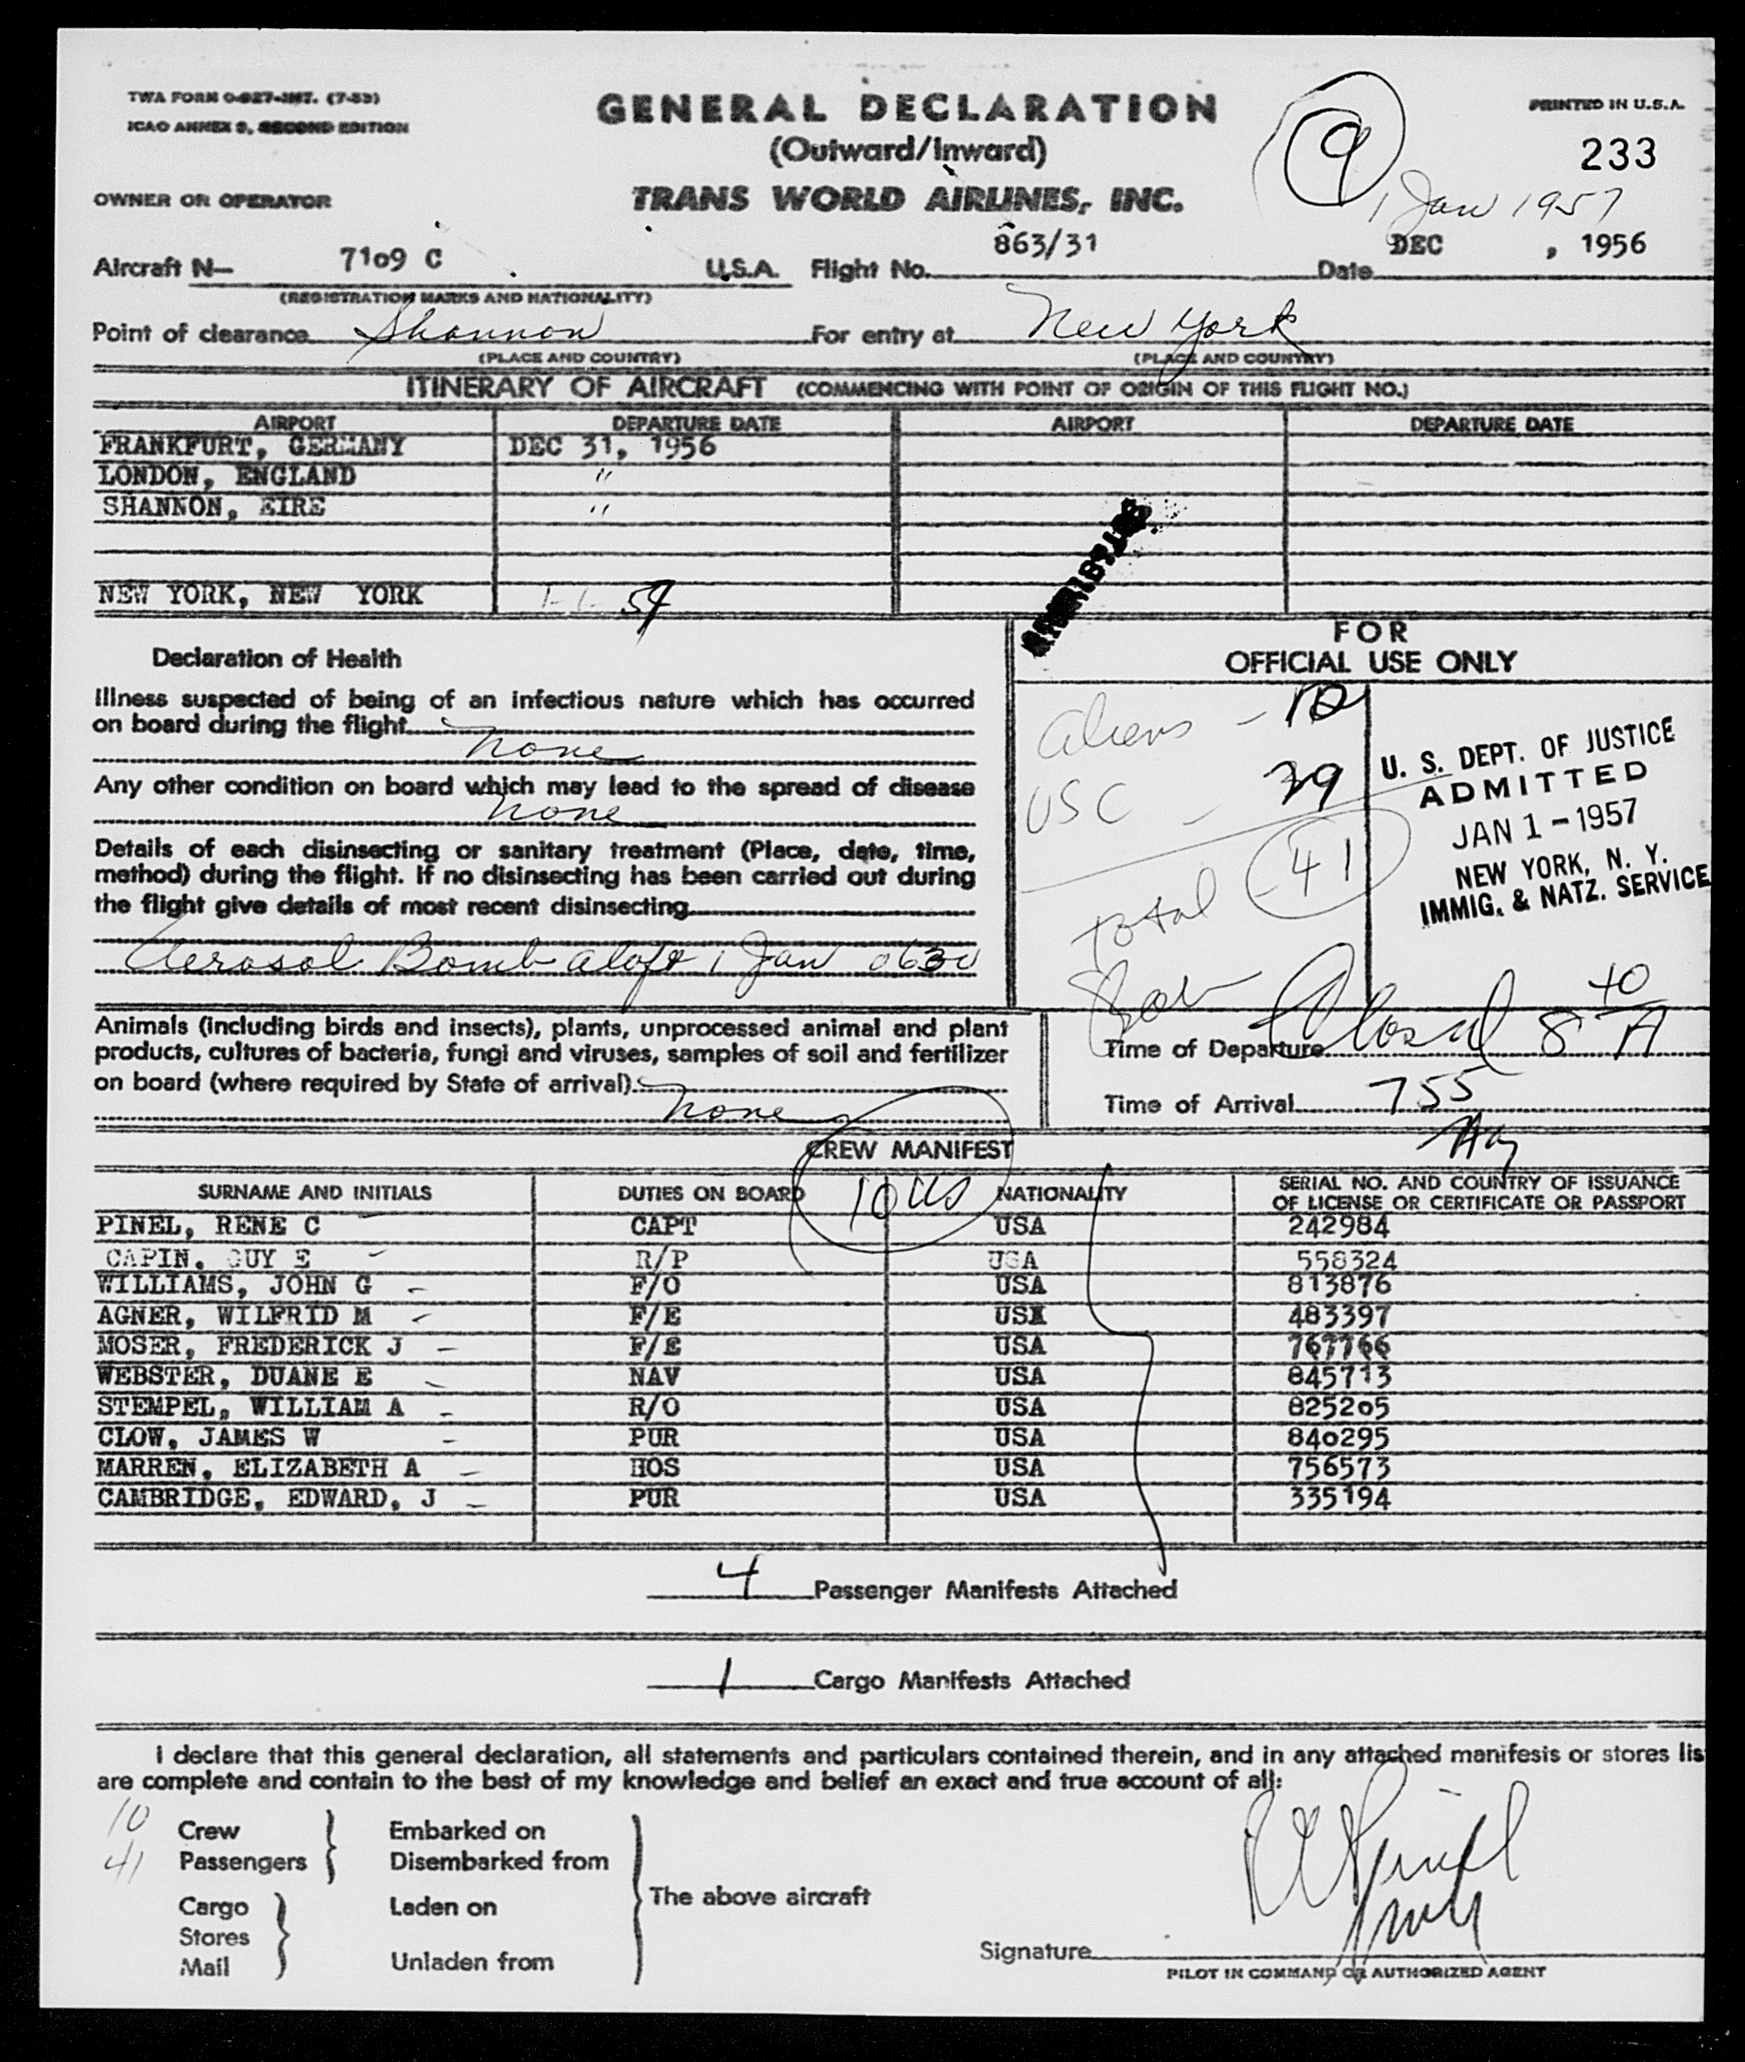 TWA FORM O-927-INT. (7-53)
ICAO ANNEX 9, SECOND EDITION
GENERAL DECLARATION
(Outward/Inward)
TRANS WORLD AIRLINES, INC.
PRINTED IN U.S.A.
9
233
1 Jan 1957
OWNER OR OPERATOR
Aircraft N- 7109 C U.S.A. Flight No. 863/31 Date DEC , 1956
(REGISTRATION MARKS AND NATIONALITY)
Point of clearance Shannon For entry at New York
(PLACE AND COUNTRY) (PLACE AND COUNTRY)
ITINERARY OF AIRCRAFT (COMMENCING WITH POINT OF ORIGIN OF THIS FLIGHT NO.)
AIRPORT DEPARTURE DATE AIRPORT DEPARTURE DATE
FRANKFURT, GERMANY DEC 31, 1956
LONDON, ENGLAND "
SHANNON, EIRE "
NEW YORK, NEW YORK 1-1-57
Declaration of Health
Illness suspected of being of an infectious nature which has occurred
on board during the flight
none
Any other condition on board which may lead to the spread of disease
none
Details of each disinsecting or sanitary treatment (Place, date, time,
method) during the flight. If no disinsecting has been carried out during
the flight give details of most recent disinsecting
Aerosol Bomb aloft 1 Jan 0630
FOR
OFFICIAL USE ONLY
Aliens - 12
USC - 29
Total 41
U. S. DEPT. OF JUSTICE
ADMITTED
JAN 1 - 1957
NEW YORK, N. Y.
IMMIG. & NATZ. SERVICE
Animals (including birds and insects), plants, unprocessed animal and plant
products, cultures of bacteria, fungi and viruses, samples of soil and fertilizer
on board (where required by State of arrival)
none
Time of Departure 8 40 A
Time of Arrival 755
CREW MANIFEST
10 US
SURNAME AND INITIALS DUTIES ON BOARD NATIONALITY SERIAL NO. AND COUNTRY OF ISSUANCE
OF LICENSE OR CERTIFICATE OR PASSPORT
PINEL, RENE C CAPT USA 242984
CAPIN. GUY E R/P USA 558324
WILLIAMS, JOHN G F/O USA 813876
AGNER, WILFRID M F/E USA 483397
MOSER, FREDERICK J F/E USA 767766
WEBSTER, DUANE E NAV USA 845713
STEMPEL, WILLIAM A R/O USA 825205
CLOW, JAMES W PUR USA 840295
MARREN, ELIZABETH A HOS USA 756573
CAMBRIDGE, EDWARD, J PUR USA 335194
4 Passenger Manifests Attached
1 Cargo Manifests Attached
I declare that this general declaration, all statements and particulars contained therein, and in any attached manifests or stores lis
are complete and contain to the best of my knowledge and belief an exact and true account of all:
10 Crew Embarked on
41 Passengers Disembarked from
The above aircraft
Cargo Laden on
Stores
Mail Unladen from
Signature
PILOT IN COMMAND OR AUTHORIZED AGENT